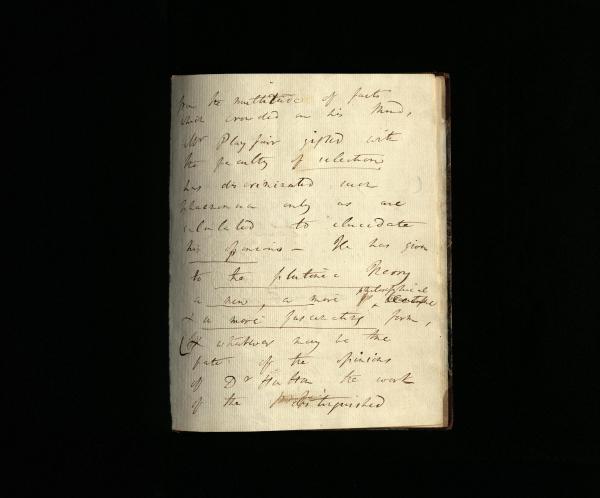 from the multitude of facts
which crowded on his Mind,
Mr Playfair gifted with
the faculty of selection
has discriminated such
phaenomena only as are
calculated to elucidate
his opinions – He has given
to the plutonic Theory
philosophical
a new, a more
& a more fascinating form,
& whatever may be the
fate of the opinions
of Dr Hutton the work
of the distinguished